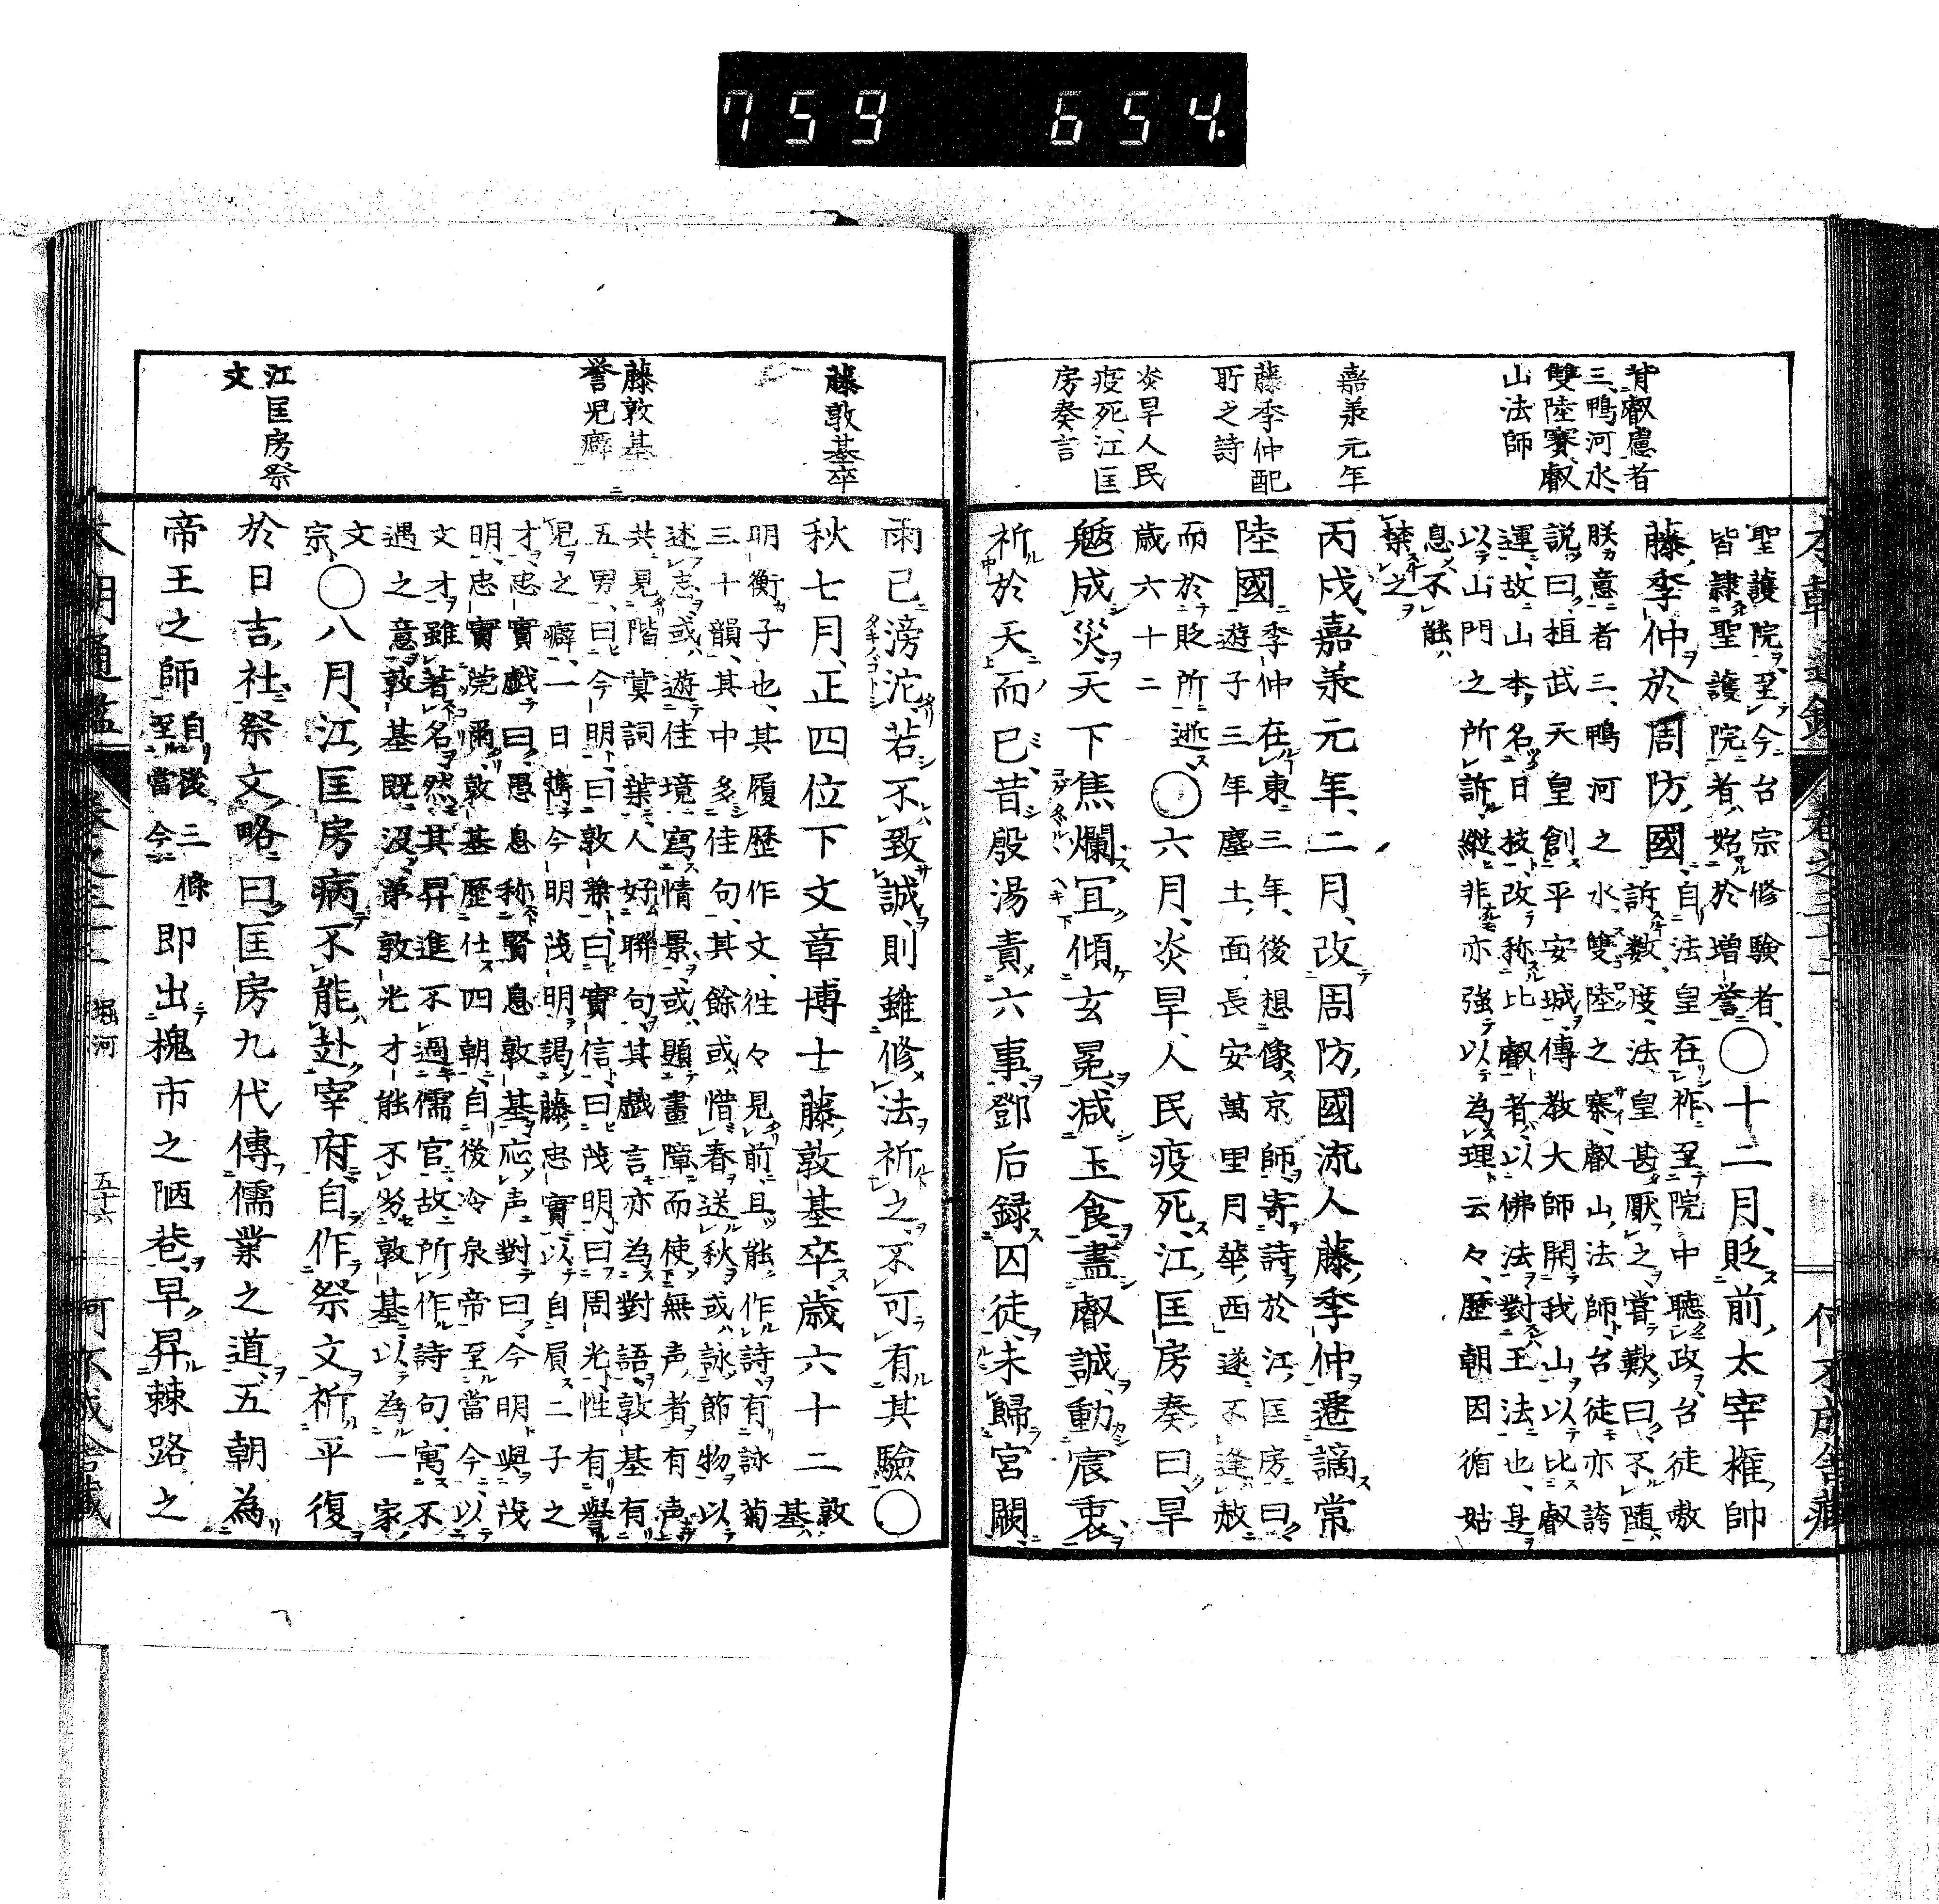 759 654.
背叡慮者
三、鴨河水、
雙陸賽、叡
山法師
嘉承元年
藤季仲配
所之詩
炎旱人民
疫死、江匡
房奏言
聖護院、至今台宗修驗者、
皆隷聖護院者、始於增譽〇十二月、貶前太宰權帥
藤季仲於周防國
自法皇在祚至院中聽政、台徒嗷
訴數度、法皇甚厭之、嘗歎曰、不隨
朕意者三、鴨河之水、雙陸之賽、叡山法師、台徒亦誇
說曰、桓武天皇創平安城、傳教大師開我山、以比叡
運、故山本名日技、改称比叡者、以佛法對王法也、是
以山門之所訴、縱非亦強以為理云々、歷朝因循姑
息、不能
禁之
丙戌、嘉承元年、二月、改周防國流人藤季仲遷謫常
陸國
季仲在東三年、後想像京師、寄詩於江匡房曰、
遊子三年塵土面、長安萬里月華西、遂不逢赦
而於貶所逝、
歲六十二
〇六月、炎旱、人民疫死、江匡房奏曰、旱
魃成災、天下焦爛、宜傾玄冕、減玉食、盡叡誠、動宸衷、
祈於天而已、昔殷湯責六事、鄧后録囚徒、未歸宮闕、
本朝通鑑 卷之三十二 堀河 五十六 何不成舎藏
藤敦基卒
藤敦基
誉児癖
江匡房祭
文
雨已滂沱、若不致誠、則雖修法祈之、不可有其驗〇
秋七月、正四位下文章博士藤敦基卒、歲六十二
敦基
明衡子也、其履歷作文、往々見前、且能作詩、有詠菊
三十韻、其中多佳句、其餘或惜春送秋、或詠節物、以
述志、或遊佳境、寫情景、或題畫障、而使無声者有声、
共見階蓂詞葉、人好聯句、其戯言亦為對語、敦基有
五男、曰今明、曰敦兼、曰實信、曰茂明、曰周光、性有譽
児之癖、一日携今明茂明謁藤忠實、以自屓二子之
才、忠實戯曰、愚息称賢息、敦基応声對曰、今明與茂
明、忠實莞爾、敦基歷仕四朝、自後冷泉帝至當今、以
文才雖著名、然其昇進不過儒官、故所作詩句、寓不
遇之意、敦基既没、弟敦光才能不劣敦基、以為一家
文
宗
〇八月、江匡房病不能赴宰府、自作祭文、祈平復
於日吉社、祭文略曰、匡房九代傳儒業之道、五朝為
帝王之師
自後三條
至當今
即出槐市之陋巷、早昇棘路之